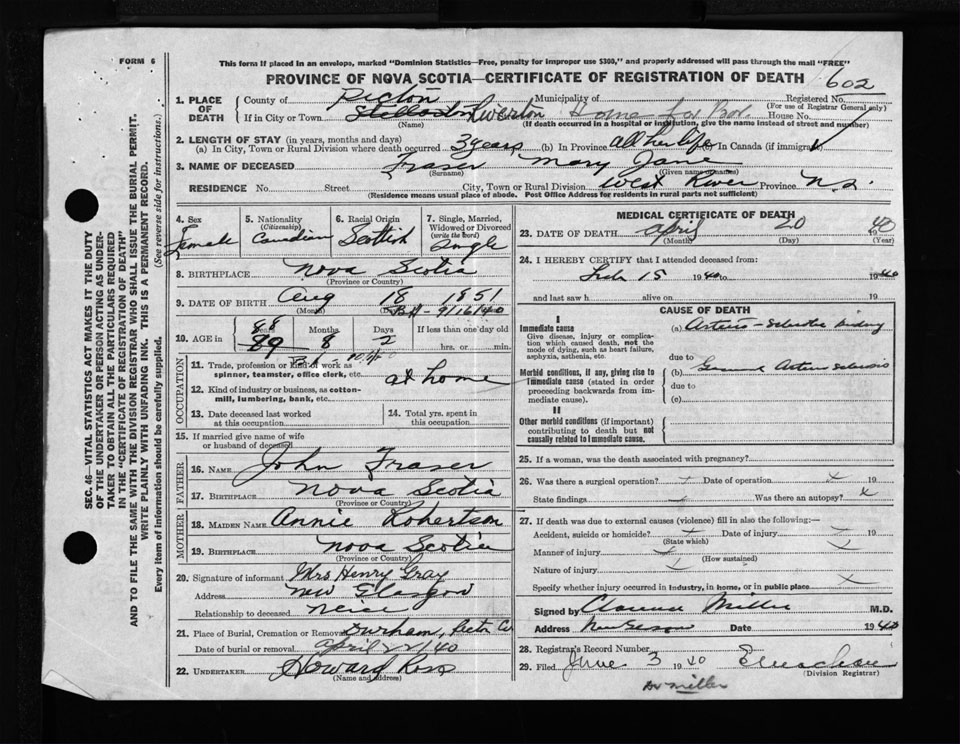 FORM 6
This form if placed in an envelope, marked "Dominion Statistics—Free, penalty for improper use $300," and properly addressed will pass through the mail "FREE"
PROVINCE OF NOVA SCOTIA—CERTIFICATE OF REGISTRATION OF DEATH
602
1. PLACE OF DEATH
County of Pictou Municipality of Registered No.
(For use of Registrar General only)
If in City or Town Stellarton Riverton Home for House No.
(Name) (If death occurred in a hospital or institution, give the name instead of street and number)
2. LENGTH OF STAY (in years, months and days)
(a) In City, Town or Rural Division where death occurred 3 years (b) In Province all her life (c) In Canada (if immigrant)
3. NAME OF DECEASED Fraser Mary Jane
(Surname) (Given name or names)
RESIDENCE No. Street City, Town or Rural Division West River Province N.S.
(Residence means usual place of abode. Post Office Address for residents in rural parts not sufficient)
4. Sex Female
5. Nationality (Citizenship) Canadian
6. Racial Origin Scottish
7. Single, Married, Widowed or Divorced (write the word) Single
8. BIRTHPLACE Nova Scotia
(Province or Country)
9. DATE OF BIRTH Aug 18 1851
(Month)
B.H - 9/16/40
10. AGE in 88 89 Years 8 Months 2 Days If less than one day old
hrs. or min.
OCCUPATION
11. Trade, profession or kind of work as spinner, teamster, office clerk, etc. at home
12. Kind of industry or business, as cotton-mill, lumbering, bank, etc.
13. Date deceased last worked at this occupation
14. Total yrs. spent in this occupation
15. If married give name of wife or husband of deceased
FATHER
16. NAME John Fraser
17. BIRTHPLACE Nova Scotia
(Province or Country)
MOTHER
18. MAIDEN NAME Annie Robertson
19. BIRTHPLACE Nova Scotia
(Province or Country)
20. Signature of informant Mrs Henry Gray
Address New Glasgow
Relationship to deceased Neice
21. Place of Burial, Cremation or Removal Durham, Pictou Co
Date of burial or removal April 22/40
22. UNDERTAKER Howard Ross
(Name and address)
MEDICAL CERTIFICATE OF DEATH
23. DATE OF DEATH April 20 1940
(Month) (Day) (Year)
24. I HEREBY CERTIFY that I attended deceased from:
Feb 15 1940 to 1940
and last saw h alive on 19
CAUSE OF DEATH
I
Immediate cause
Give disease, injury or complication which caused death, not the mode of dying, such as heart failure, asphyxia, asthenia, etc.
(a)
due to
Morbid conditions, if any, giving rise to immediate cause (stated in order preceding backwards from immediate cause).
(b)
due to
(c)
II
Other morbid conditions (if important) contributing to death but not causally related to immediate cause.
25. If a woman, was the death associated with pregnancy?
26. Was there a surgical operation? Date of operation x 19
State findings Was there an autopsy? x
27. If death was due to external causes (violence) fill in also the following:—
Accident, suicide or homicide? Date of injury 19
(State which)
Manner of injury
(How sustained)
Nature of injury
Specify whether injury occurred in industry, in home, or in public place x
Signed by Clarence Miller M.D.
Address New Glasgow Date 1940
28. Registrar's Record Number
29. Filed June 3 1940
(Division Registrar)
Dr Miller
SEC. 46—VITAL STATISTICS ACT MAKES IT THE DUTY
OF THE UNDERTAKER OR PERSON ACTING AS UNDER-
TAKER TO OBTAIN ALL THE PARTICULARS REQUIRED
IN THE "CERTIFICATE OF REGISTRATION OF DEATH"
AND TO FILE THE SAME WITH THE DIVISION REGISTRAR WHO SHALL ISSUE THE BURIAL PERMIT.
WRITE PLAINLY WITH UNFADING INK. THIS IS A PERMANENT RECORD.
Every item of information should be carefully supplied. (See reverse side for instructions.)